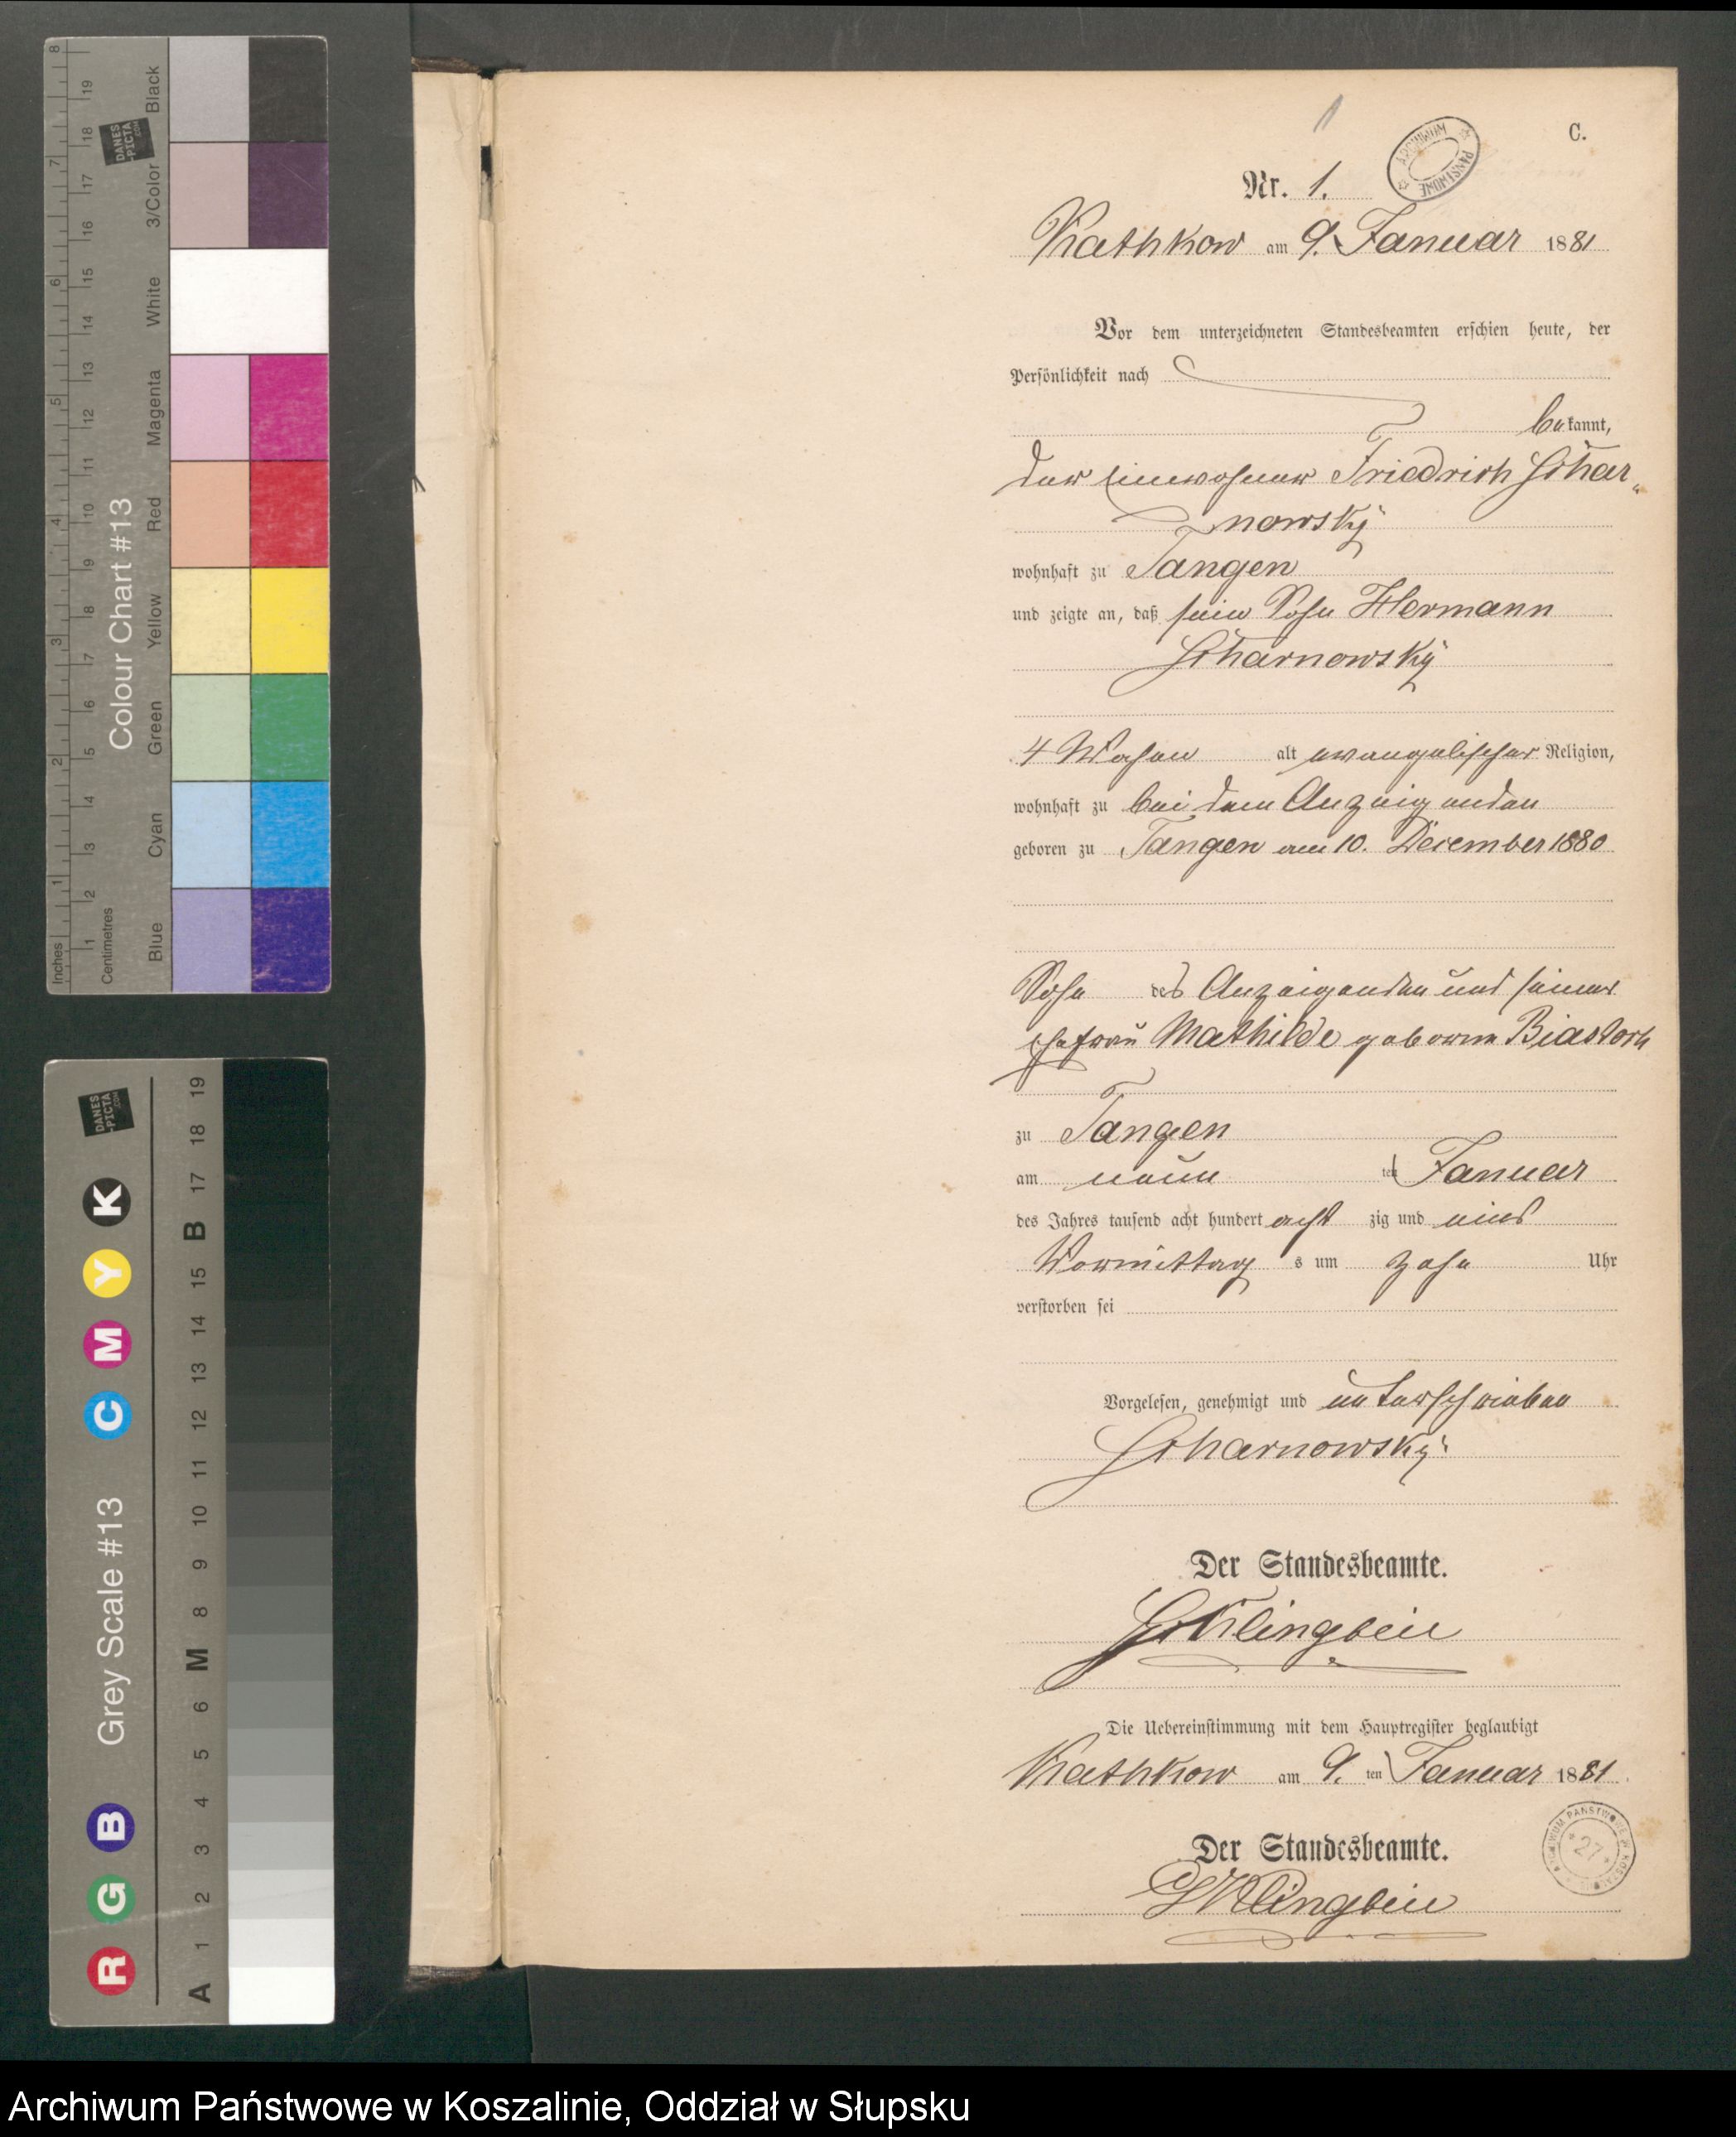 C.
Nr. 1.
ARCHIWUM PAŃSTWOWE
Rathkow am 9. Januar 1881
Vor dem unterzeichneten Standesbeamten erschien heute, der
Persönlichkeit nach
bekannt,
der Einwohner Friedrich Schar„
nowsky
wohnhaft zu Tangen
und zeigte an, daß sein Sohn Hermann
Scharnowsky
4 Wochen alt evangelischer Religion,
wohnhaft zu bei dem Anzeigenden
geboren zu Tangen am 10. December 1880
Sohn des Anzeigenden und seiner
Ehefrau Mathilde geborene Biastoch
zu Tangen
am neun ten Januar
des Jahres tausend acht hundert acht zig und eins
Vormittag s um zehn Uhr
verstorben sei
Vorgelesen, genehmigt und unterschrieben
Scharnowsky
Der Standesbeamte.
Klingbeil
Die Uebereinstimmung mit dem Hauptregister beglaubigt
Rathkow am 9. ten Januar 1881
Der Standesbeamte.
Klingbeil
27
Colour Chart #13
Inches 1 2 3 4 5 6 7 8
Centimetres 1 2 3 4 5 6 7 8 9 10 11 12 13 14 15 16 17 18 19
Blue Cyan Green Yellow Red Magenta White 3/Color Black
DANES
-PICTA
.COM
Grey Scale #13
R G B C M Y K
A 1 2 3 4 5 6 M 8 9 10 11 12 13 14 15 B 17 18 19
DANES
-PICTA
.COM
Archiwum Państwowe w Koszalinie, Oddział w Słupsku